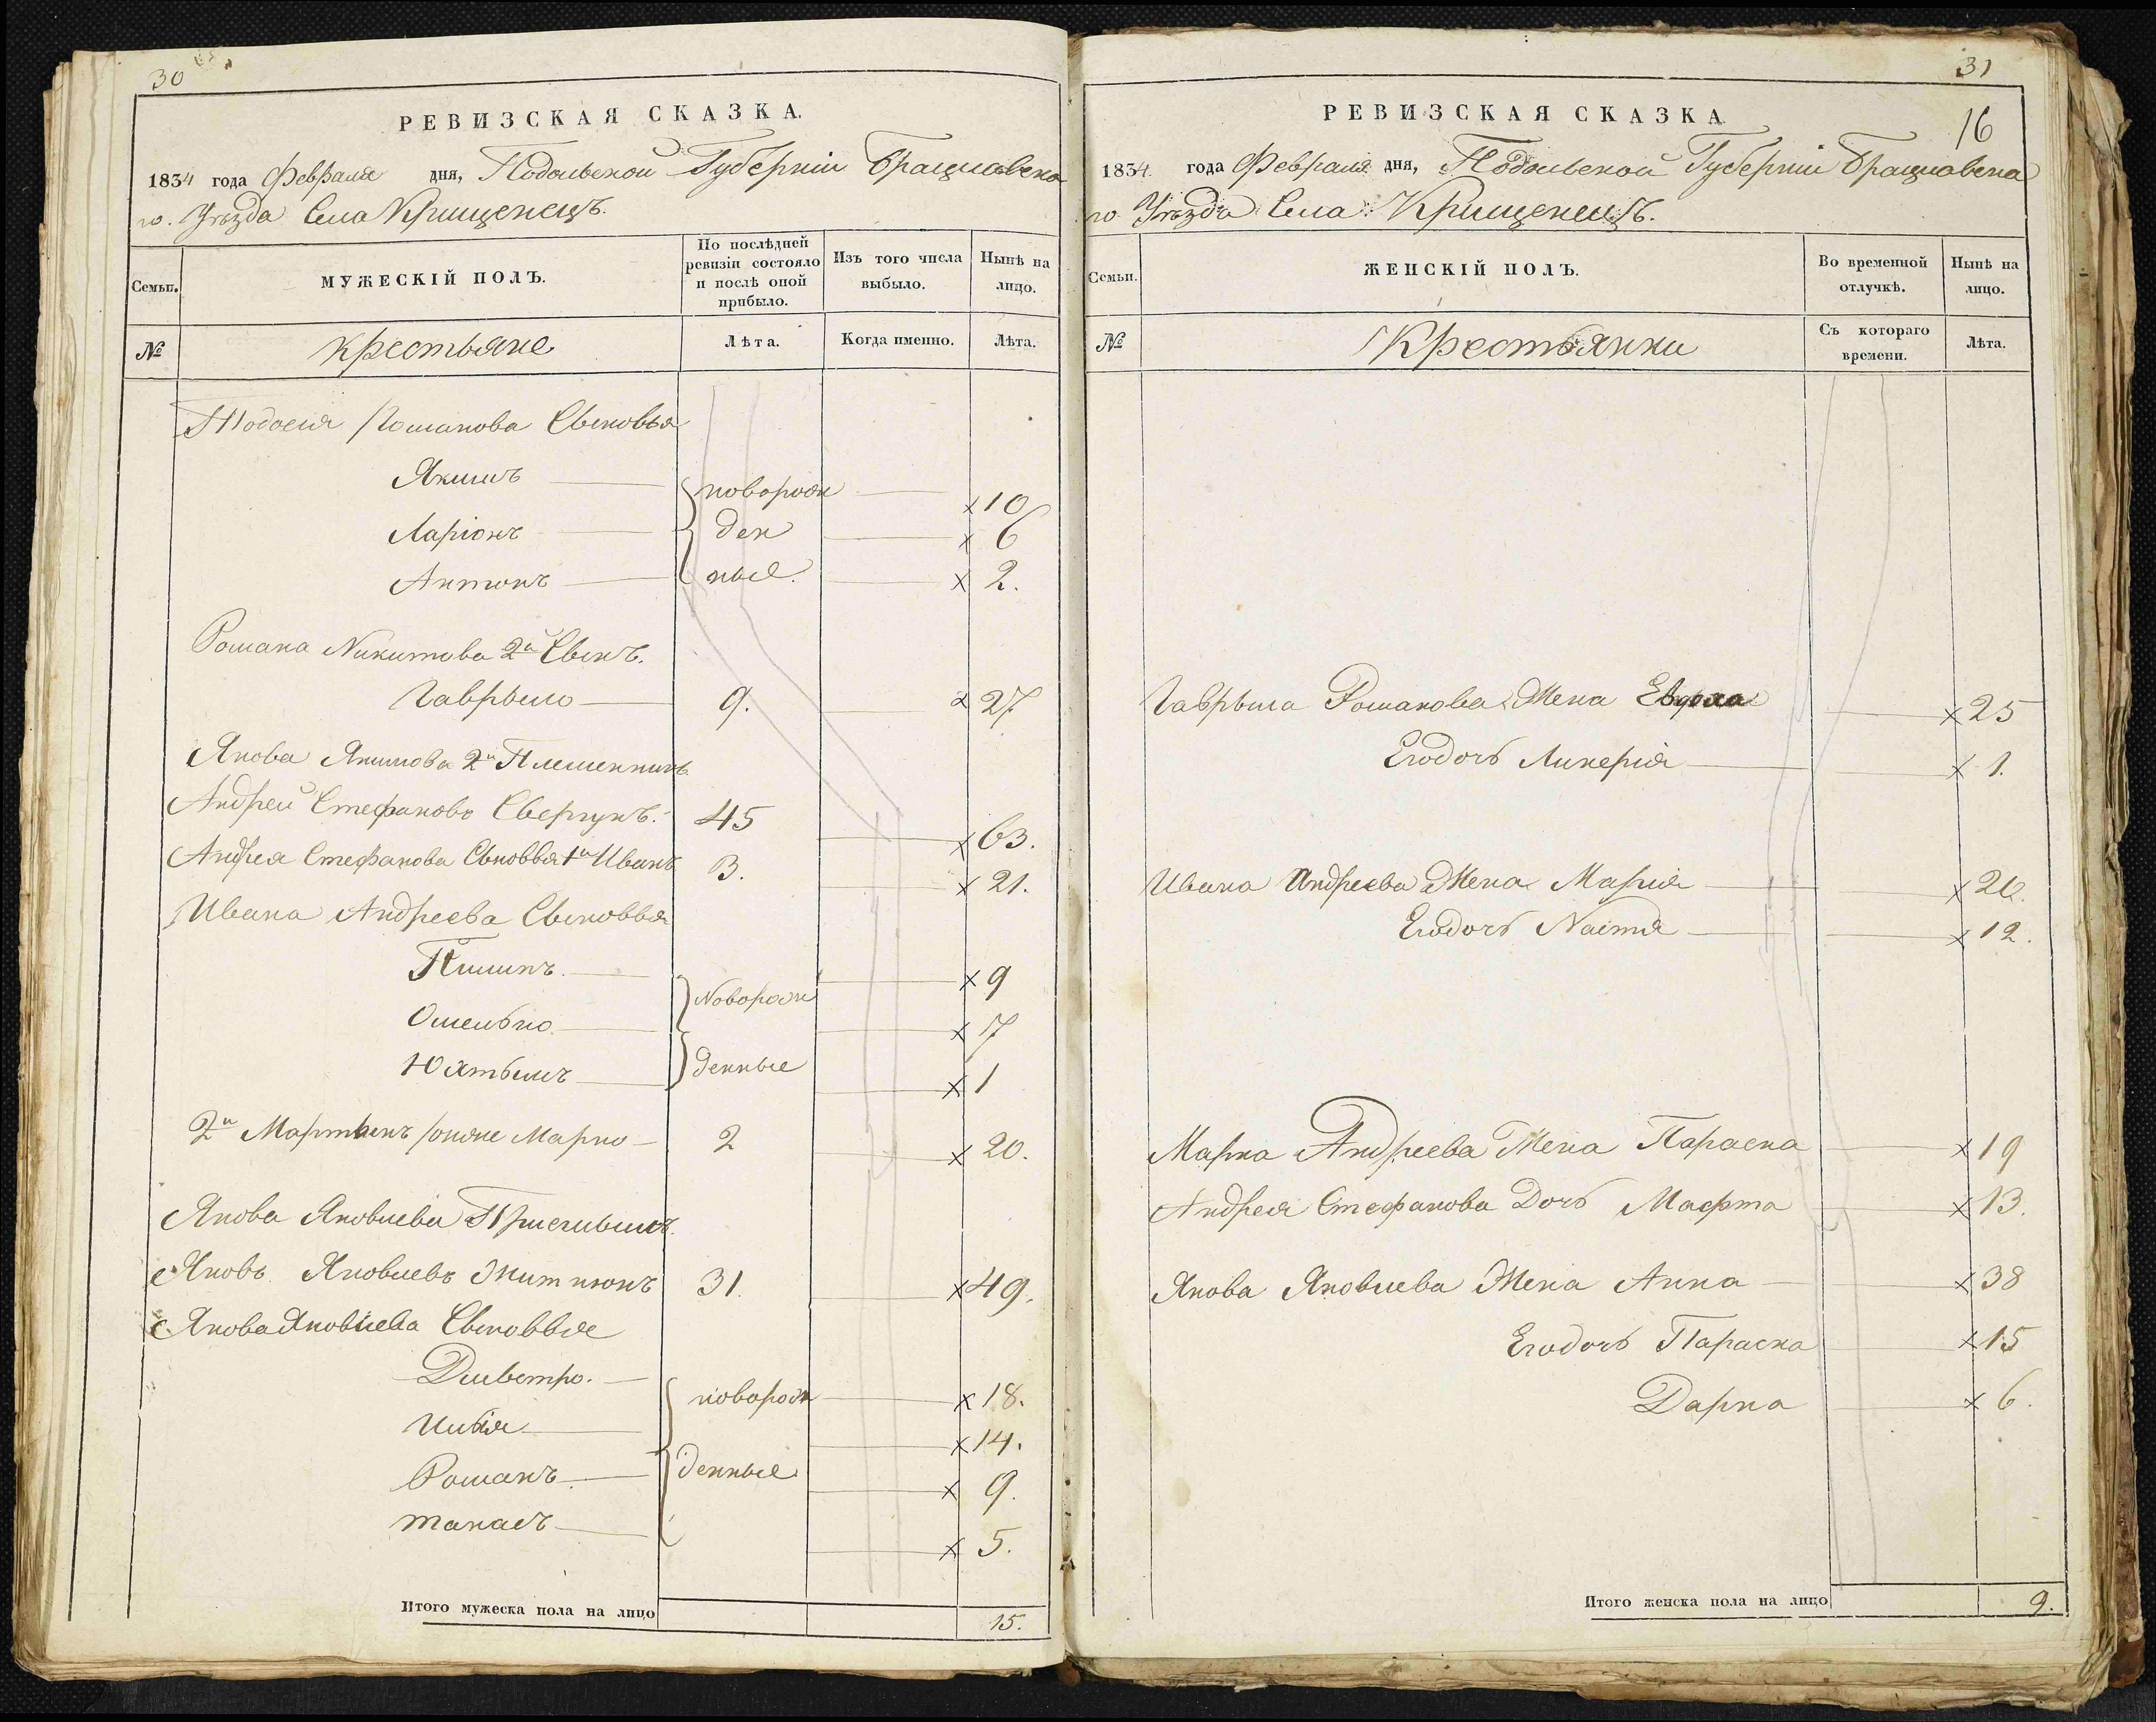 30
РЕВИЗСКАЯ СКАЗКА.
1834 года Февраля дня, Подольской Губерніи Брацлавска
го Уѣзда Села Крищенецъ.
Семьи.
МУЖЕСКІЙ ПОЛЪ.
По послѣдней ревизіи состояло и послѣ оной прибыло.
Изъ того числа выбыло.
Нынѣ на лицо.
№
Крестьяне
Лѣта.
Когда именно.
Лѣта.
Тодосія Романова Сыновья
Якимъ новорож 10
Ларіонъ ден 6
Антонъ ные. 2.
Романа Никитова 2й Сынъ.
Гаврыло 9. 27
Якова Якимова 2й Племенникъ
Андрей Стефановъ Свергунъ. 45 63.
Андрея Стефанова Сыновья 1й Иванъ 3. 21.
Ивана Андреева Сыновья
Пилипъ. Новорож 9
Омелько 7
Юхтымъ денные 1
2й Мартынъ онже Марко 2 20.
Якова Яковлева
Яковъ Яковлевъ 31. 49.
Якова Яковлева Сыновья
Дмытро. новорож 18.
Илія 14.
Романъ денные 9.
танасъ 5.
Итого мужеска пола на лицо 15.
31
16
РЕВИЗСКАЯ СКАЗКА
1834. года Февраля дня, Подольской Губерніи Брацлавска
го Уѣзда Села Крищенецъ.
Семьи.
ЖЕНСКІЙ ПОЛЪ.
Во временной отлучкѣ.
Нынѣ на лицо.
№
Крестьянки
Съ котораго времени.
Лѣта.
Гаврыла Романова Жена 25
Егодочь Ликерія 1.
Ивана Андреева Жена Марія 20.
Егодочь Настя 12.
Марка Андреева Жена Параска 19
Андрея Стефанова Дочь Мафта 13.
Якова Яковлева Жена Анна 38
Егодочь Параска 15
Дарка 6.
Итого женска пола на лицо 9.